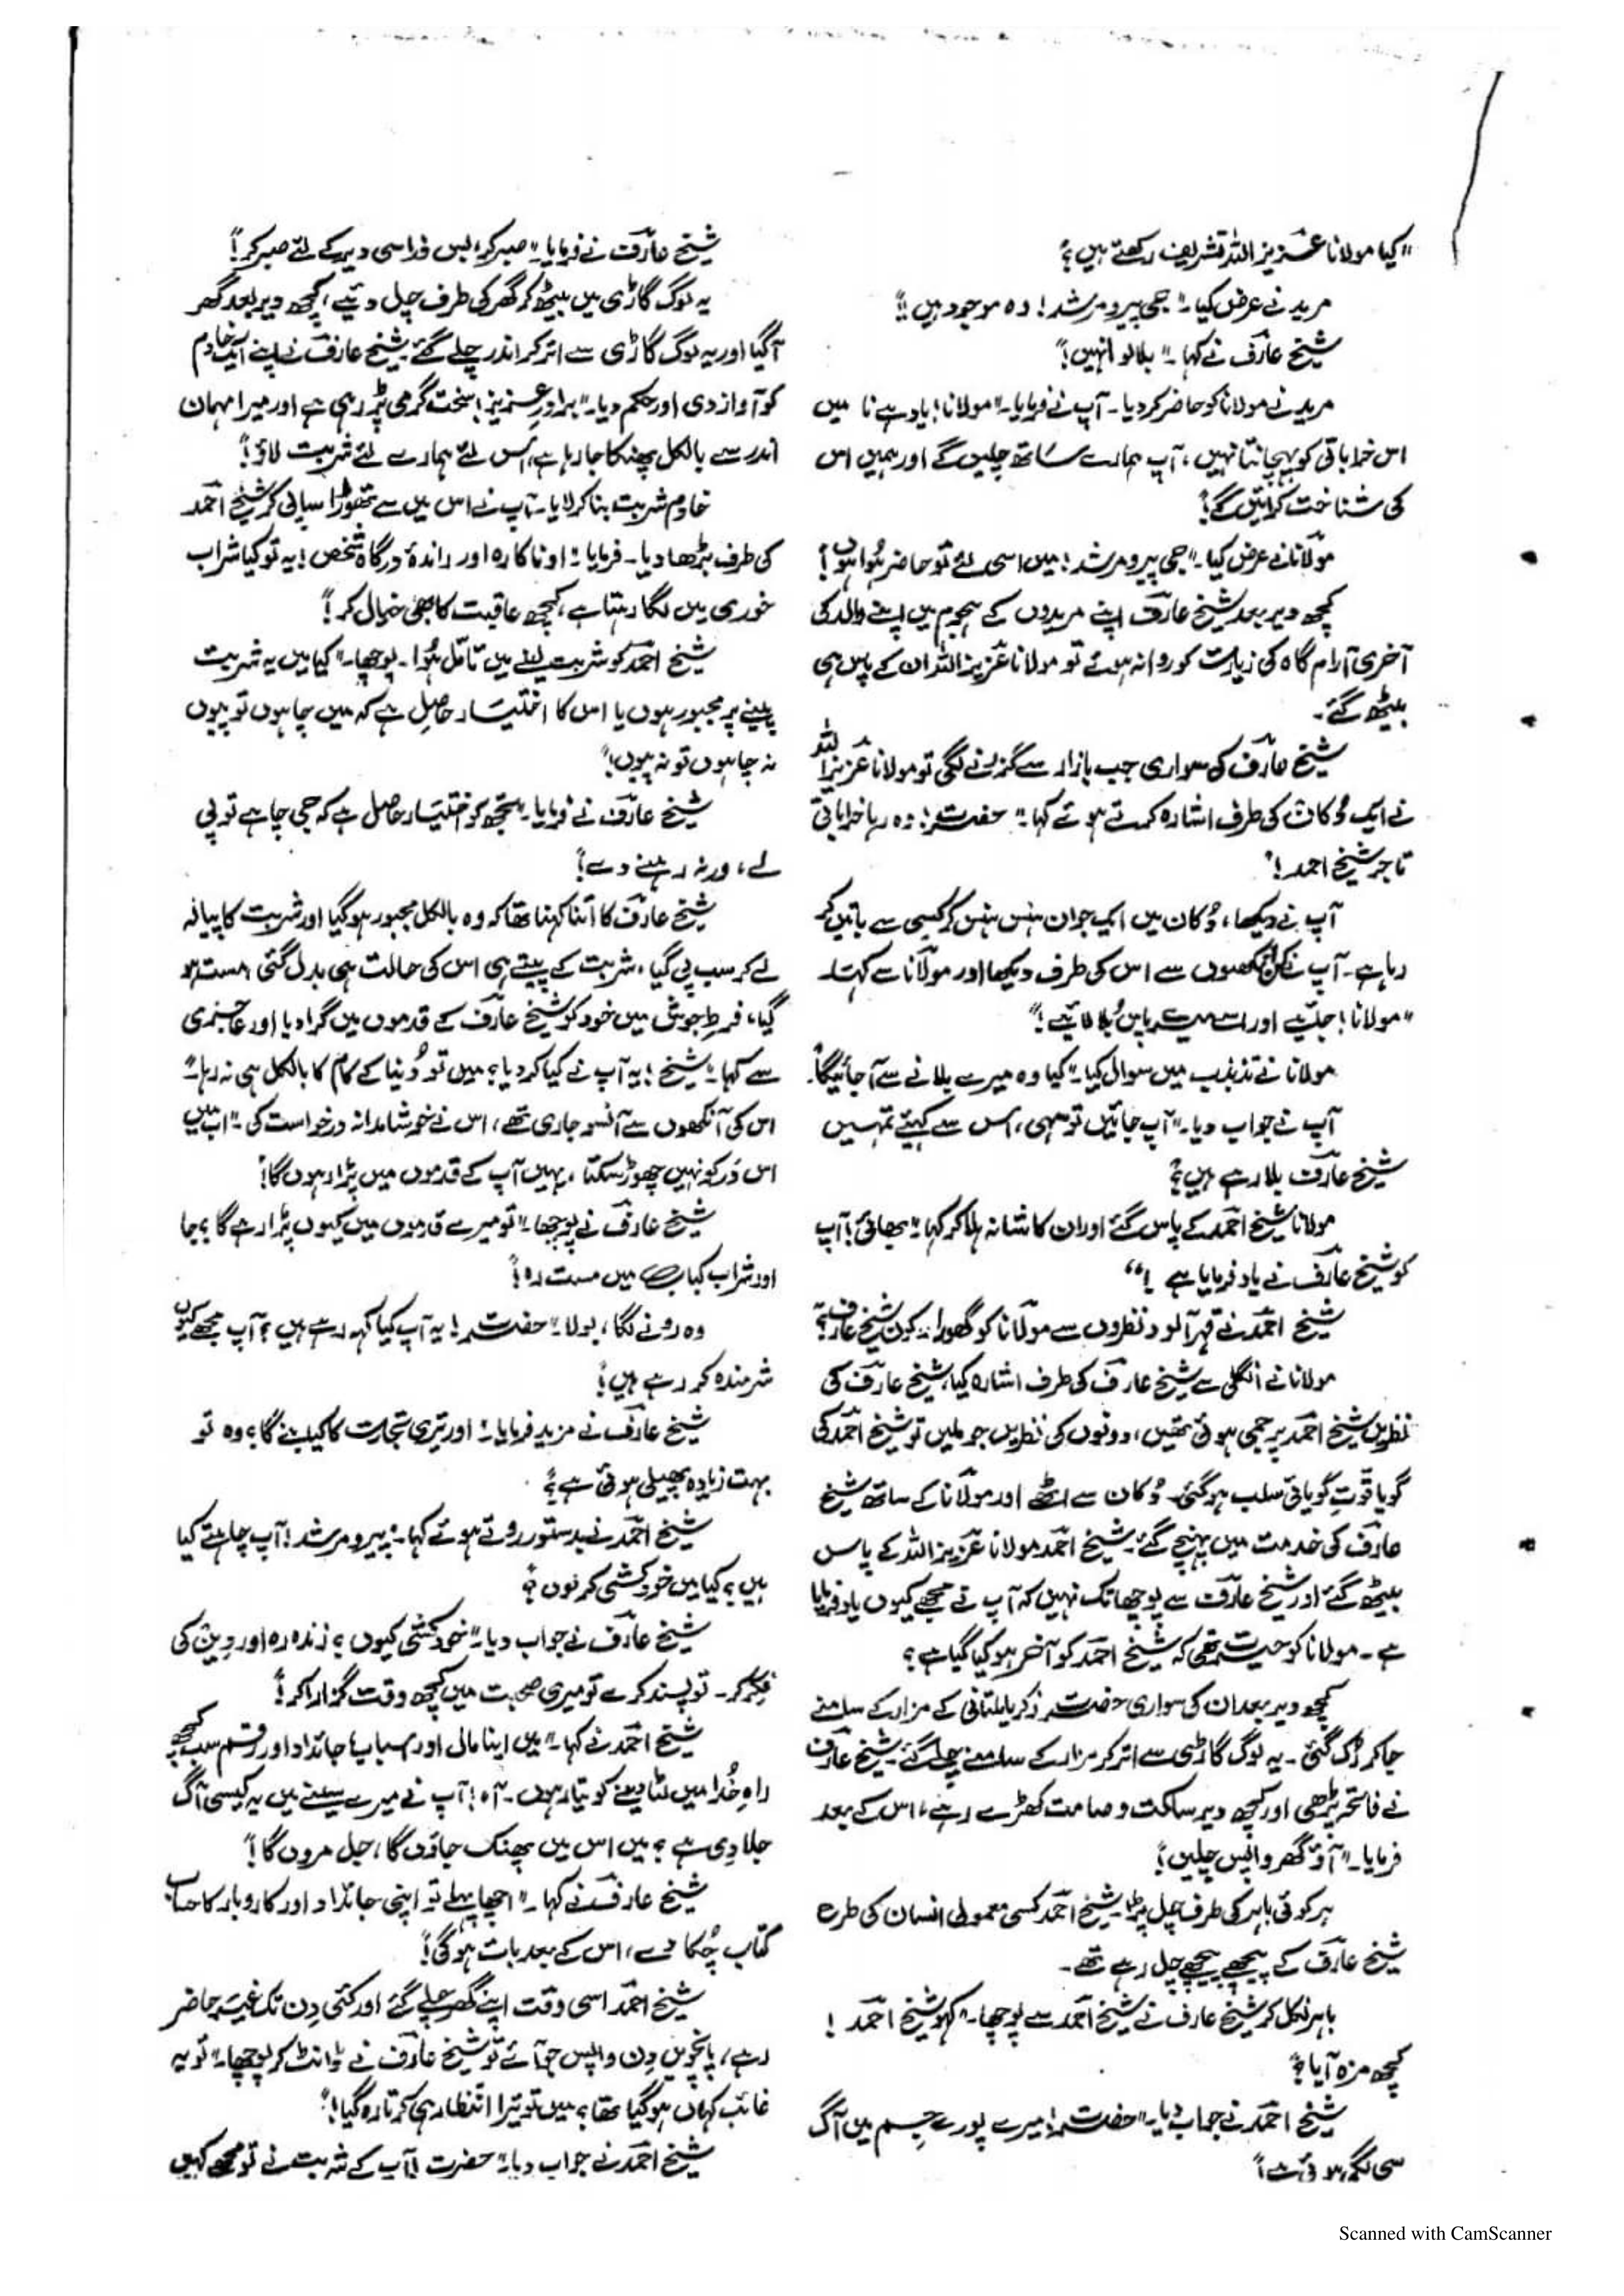 "کیا مولانا عزیز اللہ تشریف رکھتے ہیں؟"
مرید نے عرض کیا۔ "جی پیر و مرشد! وہ موجود ہیں!"
شیخ عارفؒ نے کہا۔ "بلالو انہیں!"
مرید نے مولانا کو حاضر کر دیا۔ آپ نے فرمایا۔ "مولانا! یاد ہے نا میں
اس خراباتی کو پہچانتا نہیں، آپ ہمارے ساتھ چلیں گے اور ہمیں اس
کی شناخت کرائیں گے!"
مولانا نے عرض کیا۔ "جی پیر و مرشد! میں اسی لئے تو حاضر ہوا ہوں!"
کچھ دیر بعد شیخ عارفؒ اپنے مریدوں کے ہجوم میں اپنے والد کی
آخری آرام گاہ کی زیارت کو روانہ ہوئے تو مولانا عزیز اللہ ان کے پاس ہی
بیٹھ گئے۔
شیخ عارفؒ کی سواری جب بازار سے گزرنے لگی تو مولانا عزیز اللہ
نے ایک دُکان کی طرف اشارہ کرتے ہوئے کہا۔ "حضرت! وہ رہا خراباتی
تاجر شیخ احمد!"
آپ نے دیکھا، دُکان میں ایک جوان ہنس ہنس کر کسی سے باتیں کر
رہا ہے۔ آپ نے کن انکھیوں سے اس کی طرف دیکھا اور مولانا سے کہا۔
"مولانا! جائیے اور اسے میرے پاس بُلا لائیے!"
مولانا نے تذبذب میں سوال کیا۔ "کیا وہ میرے بلانے سے آ جائیگا؟"
آپ نے جواب دیا۔ "آپ جائیں تو سہی، اس سے کہئے تمہیں
شیخ عارفؒ بلا رہے ہیں؟"
مولانا شیخ احمدؒ کے پاس گئے اور ان کا شانہ ہلا کر کہا۔ "بھائی! آپ
کو شیخ عارفؒ نے یاد فرمایا ہے!"
شیخ احمدؒ نے قہر آلود نظروں سے مولانا کو گھورا۔ "کون شیخ عارف؟"
مولانا نے انگلی سے شیخ عارفؒ کی طرف اشارہ کیا، شیخ عارفؒ کی
نظریں شیخ احمد پر جمی ہوئی تھیں، دونوں کی نظریں جو ملیں تو شیخ احمدؒ کی
گویا قوتِ گویائی سلب ہو گئی۔ دُکان سے اٹھے اور مولانا کے ساتھ شیخ
عارفؒ کی خدمت میں پہنچ گئے۔ شیخ احمد مولانا عزیز اللہ کے پاس
بیٹھ گئے اور شیخ عارفؒ سے پوچھا تک نہیں کہ آپ نے مجھے کیوں یاد فرمایا
ہے۔ مولانا کو حیرت تھی کہ شیخ احمد کو آخر ہو کیا گیا ہے؟
کچھ دیر بعد ان کی سواری حضرت زکریا ملتانی کے مزار کے سامنے
جا کر رُک گئی۔ یہ لوگ گاڑی سے اتر کر مزار کے سامنے چلے گئے۔ شیخ عارفؒ
نے فاتحہ پڑھی اور کچھ دیر ساکت و صامت کھڑے رہے، اس کے بعد
فرمایا۔ "آؤ گھر واپس چلیں!"
ہر کوئی باہر کی طرف چل پڑا۔ شیخ احمد کسی معمولی انسان کی طرح
شیخ عارفؒ کے پیچھے پیچھے چل رہے تھے۔
باہر نکل کر شیخ عارف نے شیخ احمد سے پوچھا۔ "کہو شیخ احمد!
کچھ مزہ آیا؟"
شیخ احمدؒ نے جواب دیا۔ "حضرت! میرے پورے جسم میں آگ
سی لگی ہوئی ہے!"
شیخ عارفؒ نے فرمایا۔ "صبر کر، بس ذرا سی دیر کے لئے صبر کر!"
یہ لوگ گاڑی میں بیٹھ کر گھر کی طرف چل دیئے، کچھ دیر بعد گھر
آگیا اور یہ لوگ گاڑی سے اتر کر اندر چلے گئے۔ شیخ عارفؒ نے اپنے ایک خادم
کو آواز دی اور حکم دیا۔ "برادرِ عزیز! سخت گرمی پڑ رہی ہے اور میرا مہمان
اندر سے بالکل پھنکا جا رہا ہے، اس لئے ہمارے لئے شربت لاؤ!"
خادم شربت بنا کر لایا۔ آپ نے اس میں سے تھوڑا سا پی کر شیخ احمد
کی طرف بڑھا دیا۔ فرمایا۔ "او ناکارہ اور راندۂ درگاہ شخص! یہ تو کیا شراب
خوری میں لگا رہتا ہے، کچھ عاقبت کا بھی خیال کر!"
شیخ احمد کو شربت لینے میں تامّل ہُوا۔ پوچھا۔ "کیا میں یہ شربت
پینے پر مجبور ہوں یا اس کا اختیار حاصل ہے کہ میں چاہوں تو پیوں
نہ چاہوں تو نہ پیوں!"
شیخ عارفؒ نے فرمایا۔ "تجھ کو اختیار حاصل ہے کہ جی چاہے تو پی
لے، ورنہ رہنے دے!"
شیخ عارفؒ کا اتنا کہنا تھا کہ وہ بالکل مجبور ہو گیا اور شربت کا پیالہ
لے کر سب پی گیا، شربت کے پیتے ہی اس کی حالت ہی بدل گئی، مست ہو
گیا، فرطِ جوش میں خود کو شیخ عارفؒ کے قدموں میں گرا دیا اور عاجزی
سے کہا۔ "شیخ! یہ آپ نے کیا کر دیا؟ میں تو دُنیا کے کام کا بالکل ہی نہ رہا۔"
اس کی آنکھوں سے آنسو جاری تھے، اس نے خوشامدانہ درخواست کی۔ "اب میں
اس در کو نہیں چھوڑ سکتا، یہیں آپ کے قدموں میں پڑا رہوں گا!"
شیخ عارفؒ نے پوچھا۔ "تو میرے قدموں میں کیوں پڑا رہے گا؟ جا
اور شراب کباب میں مست رہ!"
وہ رونے لگا، بولا۔ "حضرت! یہ آپ کیا کہہ رہے ہیں؟ آپ مجھے کیوں
شرمندہ کر رہے ہیں!"
شیخ عارفؒ نے مزید فرمایا۔ "اور تیری تجارت کا کیا بنے گا؟ وہ تو
بہت زیادہ پھیلی ہوئی ہے؟"
شیخ احمدؒ نے بدستور روتے ہوئے کہا۔ "پیر و مرشد! آپ چاہتے کیا
ہیں؟ کیا میں خودکشی کر لوں؟"
شیخ عارفؒ نے جواب دیا۔ "خودکشی کیوں؟ زندہ رہ اور دین کی
فکر کر۔ تو پسند کرے تو میری صحبت میں کچھ وقت گزارا کر!"
شیخ احمدؒ نے کہا۔ "میں اپنا مال اور اسباب، جائداد اور رقم سب کچھ
راہِ خُدا میں لٹا دینے کو تیار ہوں۔ آہ! آپ نے میرے سینے میں یہ کیسی آگ
جلا دی ہے؟ میں اس میں پھنک جاؤں گا، جل مروں گا!"
شیخ عارفؒ نے کہا۔ "اچھا پہلے تو اپنی جائداد اور کاروبار کا حساب
کتاب چُکا دے، اس کے بعد بات ہوگی!"
شیخ احمد اسی وقت اپنے گھر چلے گئے اور کئی دن تک غیر حاضر
رہے، پانچویں دن واپس جو آئے تو شیخ عارفؒ نے ڈانٹ کر پوچھا۔ "تو یہ
غائب کہاں ہو گیا تھا؟ میں تو تیرا انتظار ہی کرتا رہ گیا!"
شیخ احمدؒ نے جواب دیا۔ "حضرت! آپ کے شربت نے تو مجھے کہیں
Scanned with CamScanner